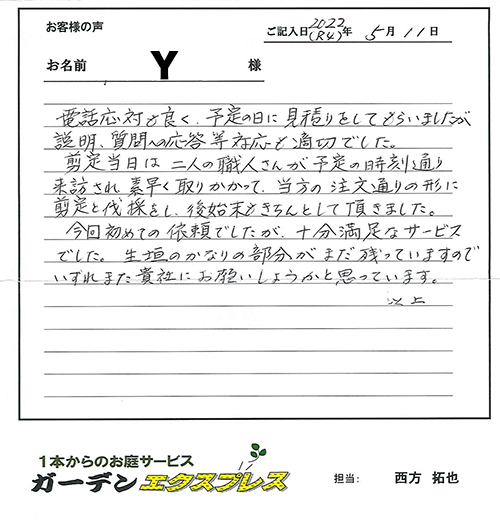 お客様の声
ご記入日2022(R4)年 5月11日
お名前 Y 様
電話応対も良く、予定の日に見積りをしてもらいましたが
説明、質問への応答等対応も適切でした。
剪定当日は二人の職人さんが予定の時刻通り
来訪され素早く取りかかって、当方の注文通りの形に
剪定と伐採をし、後始末もきちんとして頂きました。
今回初めての依頼でしたが、十分満足なサービス
でした。生垣のかなりの部分がまだ残っていますので
いずれまた貴社にお願いしようかと思っています。
以上
1本からのお庭サービス
ガーデンエクスプレス
担当: 西方 拓也